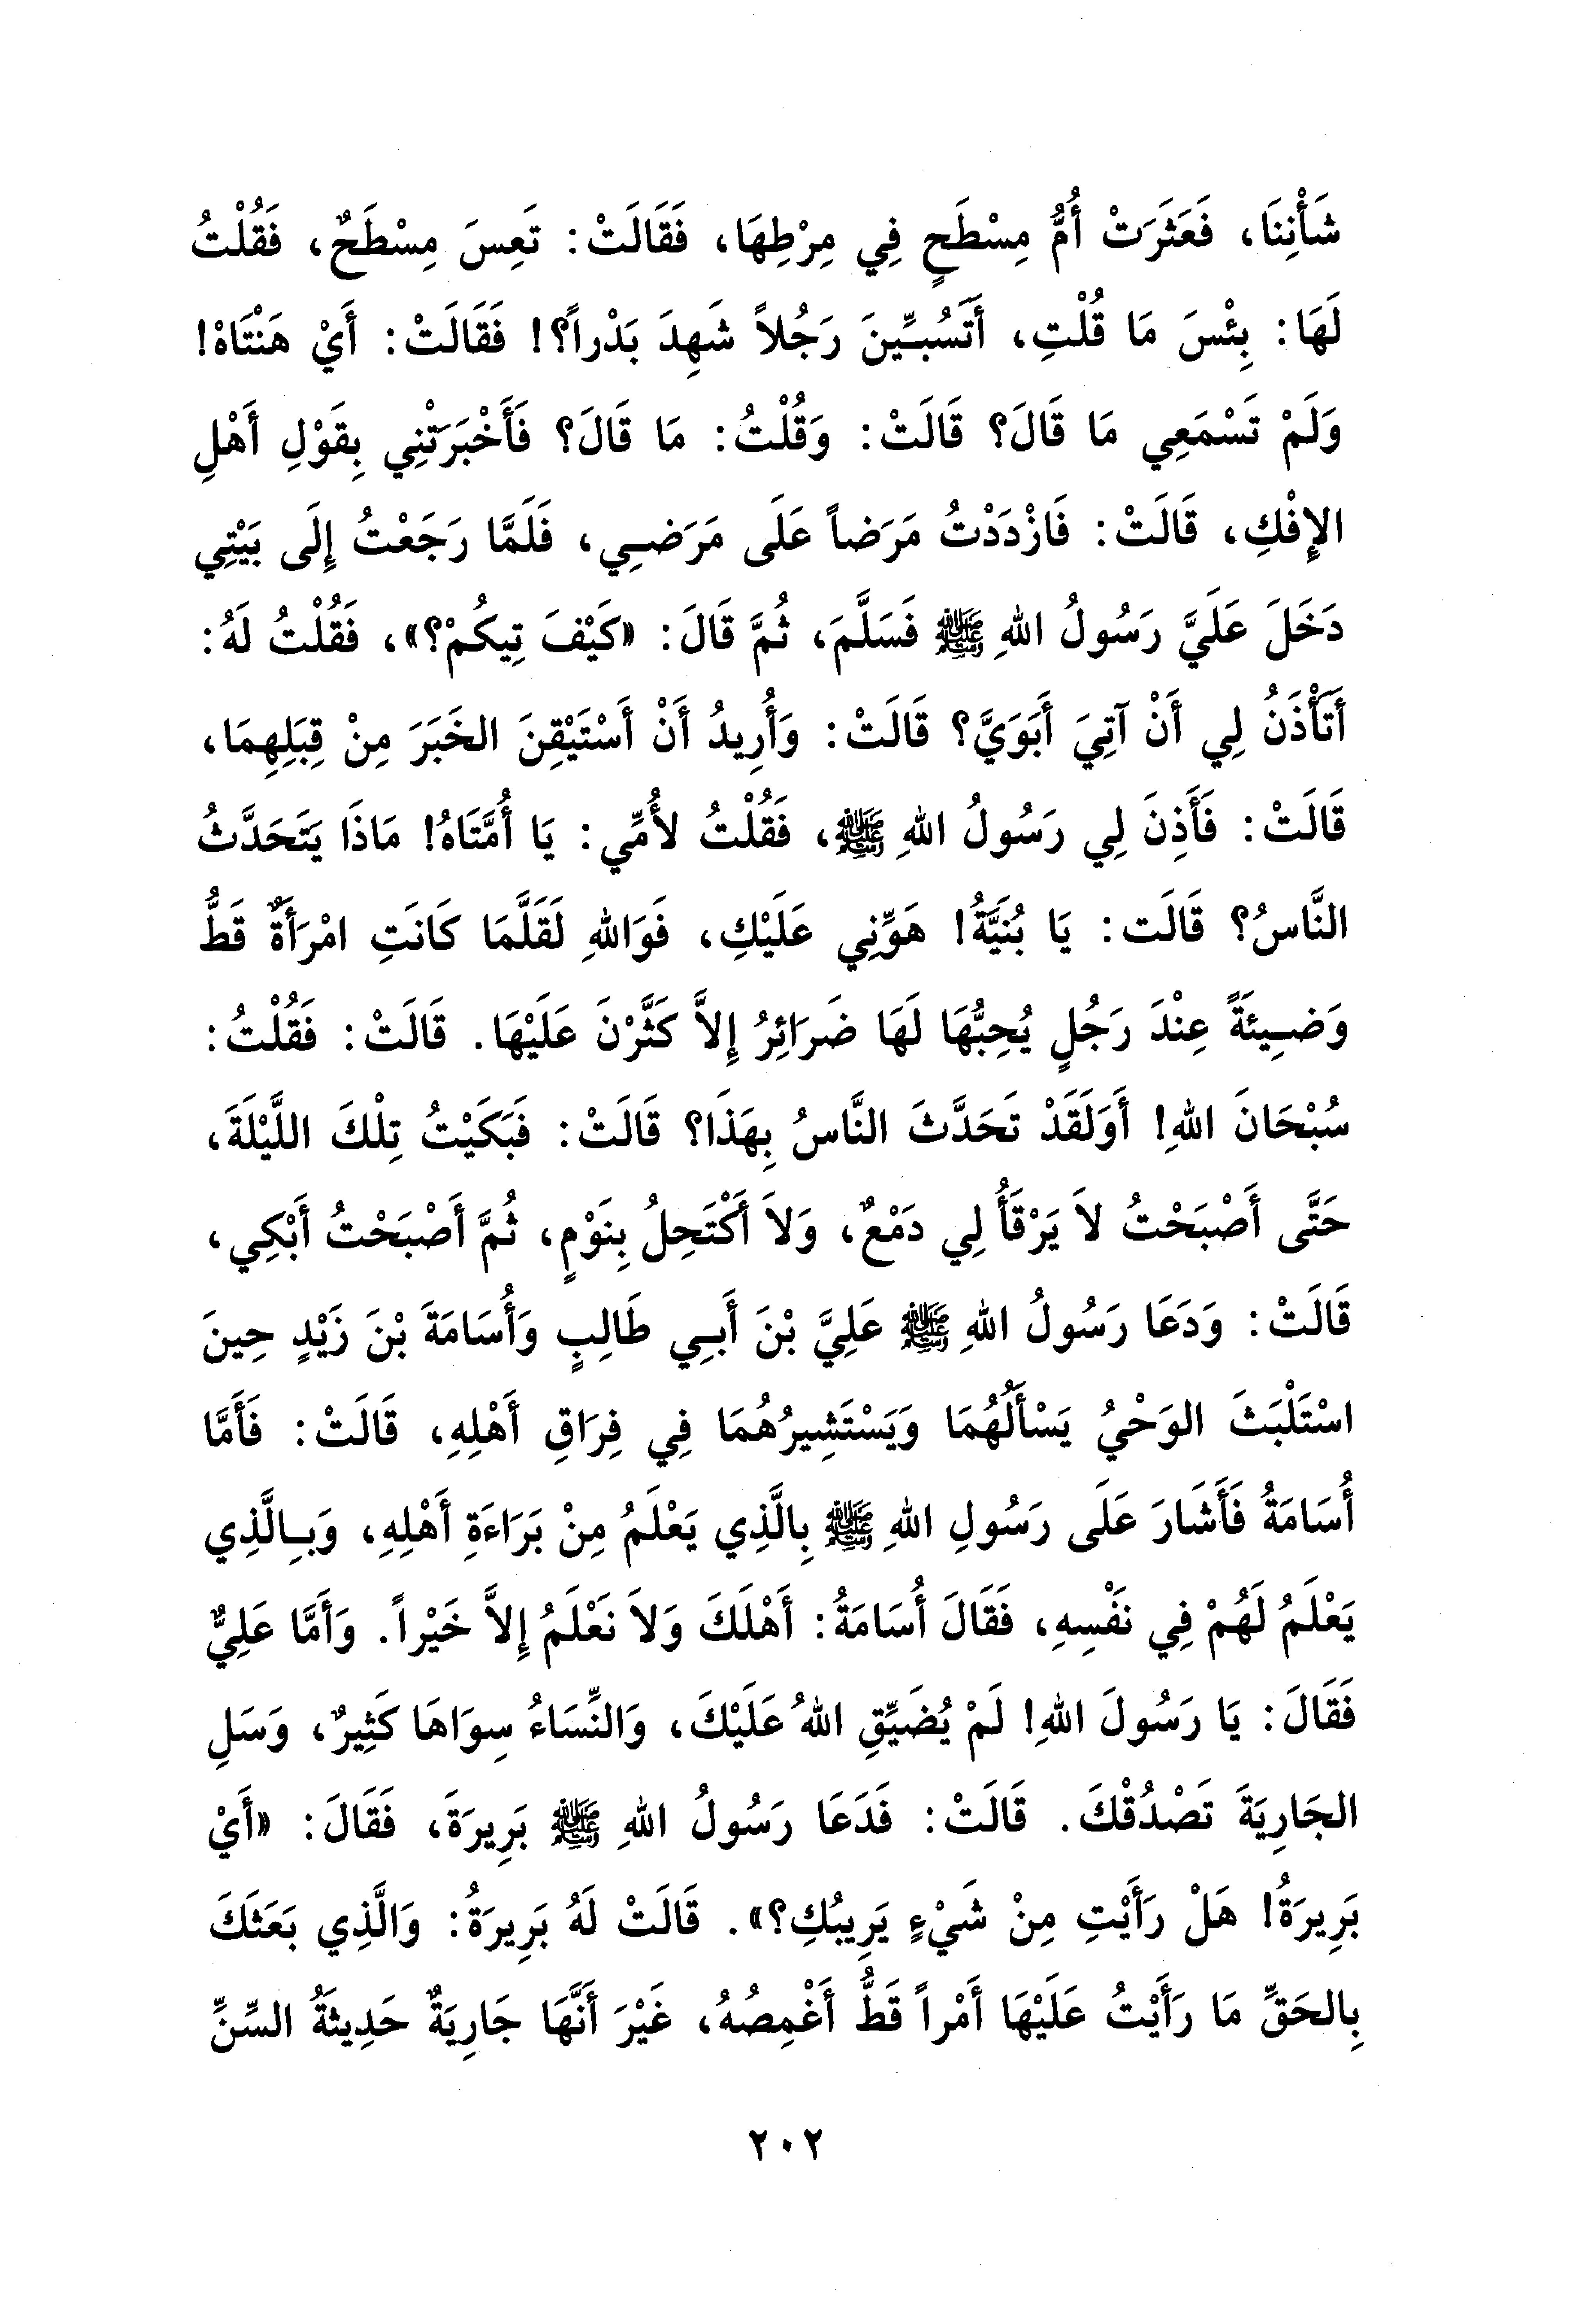 شَأْنِنَا، فَعَثَرَتْ أُمُّ مِسْطَحٍ فِي مِرْطِهَا، فَقَالَتْ: تَعِسَ مِسْطَحٌ، فَقُلْتُ
لَهَا: بِئْسَ مَا قُلْتِ، أَتَسُبِّينَ رَجُلاً شَهِدَ بَدْراً؟! فَقَالَتْ: أَيْ هَنْتَاهْ!
وَلَمْ تَسْمَعِي مَا قَالَ؟ قَالَتْ: وَقُلْتُ: مَا قَالَ؟ فَأَخْبَرَتْنِي بِقَوْلِ أَهْلِ
الإِفْكِ، قَالَتْ: فَازْدَدْتُ مَرَضاً عَلَى مَرَضِي، فَلَمَّا رَجَعْتُ إِلَى بَيْتِي
دَخَلَ عَلَيَّ رَسُولُ اللهِ ﷺ فَسَلَّمَ، ثُمَّ قَالَ: «كَيْفَ تِيكُمْ؟»، فَقُلْتُ لَهُ:
أَتَأْذَنُ لِي أَنْ آتِيَ أَبَوَيَّ؟ قَالَتْ: وَأُرِيدُ أَنْ أَسْتَيْقِنَ الخَبَرَ مِنْ قِبَلِهِمَا،
قَالَتْ: فَأَذِنَ لِي رَسُولُ اللهِ ﷺ، فَقُلْتُ لأُمِّي: يَا أُمَّتَاهُ! مَاذَا يَتَحَدَّثُ
النَّاسُ؟ قَالَت: يَا بُنَيَّةُ! هَوِّنِي عَلَيْكِ، فَوَاللهِ لَقَلَّمَا كَانَتِ امْرَأَةٌ قَطُّ
وَضِيئَةً عِنْدَ رَجُلٍ يُحِبُّهَا لَهَا ضَرَائِرُ إِلاَّ كَثَّرْنَ عَلَيْهَا. قَالَتْ: فَقُلْتُ:
سُبْحَانَ اللهِ! أَوَلَقَدْ تَحَدَّثَ النَّاسُ بِهَذَا؟ قَالَتْ: فَبَكَيْتُ تِلْكَ اللَّيْلَةَ،
حَتَّى أَصْبَحْتُ لاَ يَرْقَأُ لِي دَمْعٌ، وَلاَ أَكْتَحِلُ بِنَوْمٍ، ثُمَّ أَصْبَحْتُ أَبْكِي،
قَالَتْ: وَدَعَا رَسُولُ اللهِ ﷺ عَلِيَّ بْنَ أَبِي طَالِبٍ وَأُسَامَةَ بْنَ زَيْدٍ حِينَ
اسْتَلْبَثَ الوَحْيُ يَسْأَلُهُمَا وَيَسْتَشِيرُهُمَا فِي فِرَاقِ أَهْلِهِ، قَالَتْ: فَأَمَّا
أُسَامَةُ فَأَشَارَ عَلَى رَسُولِ اللهِ ﷺ بِالَّذِي يَعْلَمُ مِنْ بَرَاءَةِ أَهْلِهِ، وَبِالَّذِي
يَعْلَمُ لَهُمْ فِي نَفْسِهِ، فَقَالَ أُسَامَةُ: أَهْلَكَ وَلاَ نَعْلَمُ إِلاَّ خَيْراً. وَأَمَّا عَلِيٌّ
فَقَالَ: يَا رَسُولَ اللهِ! لَمْ يُضَيِّقِ اللهُ عَلَيْكَ، وَالنِّسَاءُ سِوَاهَا كَثِيرٌ، وَسَلِ
الجَارِيَةَ تَصْدُقْكَ. قَالَتْ: فَدَعَا رَسُولُ اللهِ ﷺ بَرِيرَةَ، فَقَالَ: «أَيْ
بَرِيرَةُ! هَلْ رَأَيْتِ مِنْ شَيْءٍ يَرِيبُكِ؟». قَالَتْ لَهُ بَرِيرَةُ: وَالَّذِي بَعَثَكَ
بِالحَقِّ مَا رَأَيْتُ عَلَيْهَا أَمْراً قَطُّ أَغْمِصُهُ، غَيْرَ أَنَّهَا جَارِيَةٌ حَدِيثَةُ السِّنِّ
٢٠٢